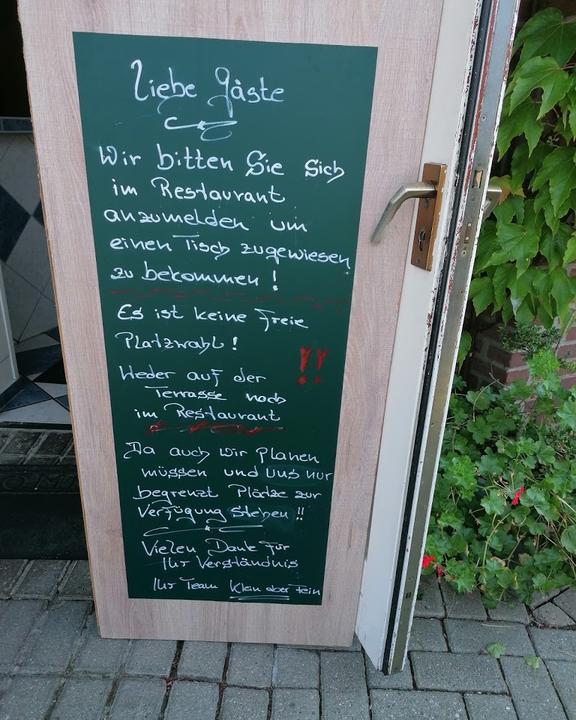 Liebe Gäste
Wir bitten Sie Sich
im Restaurant
anzumelden um
einen Tisch zugewiesen
zu bekommen !
Es ist keine Freie
Platzwahl !
Weder auf der !!
Terrasse noch
im Restaurant
Da auch Wir Planen
müssen und Uns nur
begrenzt Plätze zur
Verfügung stehen !!
Vielen Dank für
Ihr Verständnis
Ihr Team Klein aber Fein